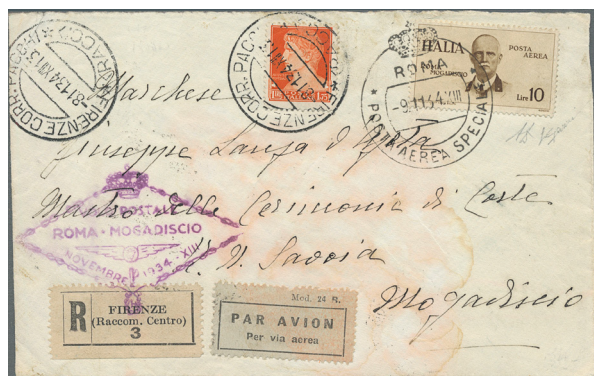 FIRENZE CORR. PACCHI (RACC.)
8.11.34.XII.13
FIRENZE CORR. PACCHI
ITALIA
POSTA AEREA
ROMA MOGADISCIO
Lire 10
ROMA
9.11.34.XIII
POSTA AEREA SPECIALE
Marchese
Giuseppe Lanza d'
Mastro delle Cerimonie di Corte
R. N. Savoia
Mogadiscio
POSTALE
ROMA - MOGADISCIO
NOVEMBRE 1934 - XIII
R
FIRENZE
(Raccom. Centro)
3
Mod. 24 R.
PAR AVION
Per via aerea